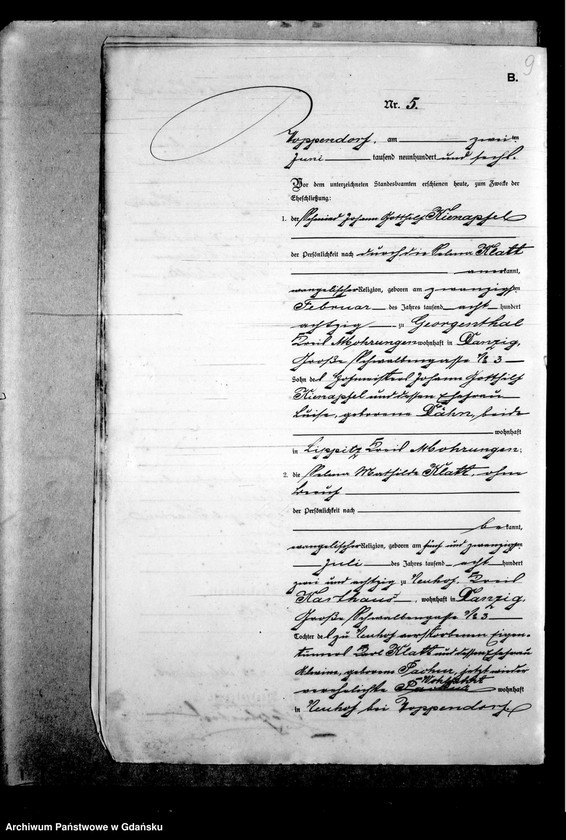 9
B.
Nr. 5.
Zoppendorf, am zwei ten
Juni tausend neunhundert und sechs.
Vor dem unterzeichneten Standesbeamten erschienen heute, zum Zwecke der
Eheschließung:
1. der Schmied Johann Gotthilf Kienapfel
der Persönlichkeit nach durch die Selma Klatt
anerkannt,
evangelischer Religion, geboren am zwanzigsten
Februar des Jahres tausend acht hundert
achtzig zu Georgenthal
Kreis Mohrungen wohnhaft in Danzig,
Große Schwalbengasse 3
Sohn des Hofmeisters Johann Gotthilf
Kienapfel und dessen Ehefrau
Luise, geborene Dähn, beide
wohnhaft
in Lippitz Kreis Mohrungen;
2. die Selma Mathilde Klatt, ohne
Beruf
der Persönlichkeit nach
bekannt,
evangelischer Religion, geboren am fünf und zwanzigsten
Juli des Jahres tausend acht hundert
zwei und achtzig zu Neuhof Kreis
Karthaus, wohnhaft in Danzig,
Große Schwalbengasse 3
Tochter des zu Neuhof verstorbenen Eigen-
tümers Karl Klatt und dessen Ehefrau
geborene jetzt wieder
verehelichte wohnhaft
in Neuhof bei Zoppendorf
Archiwum Państwowe w Gdańsku